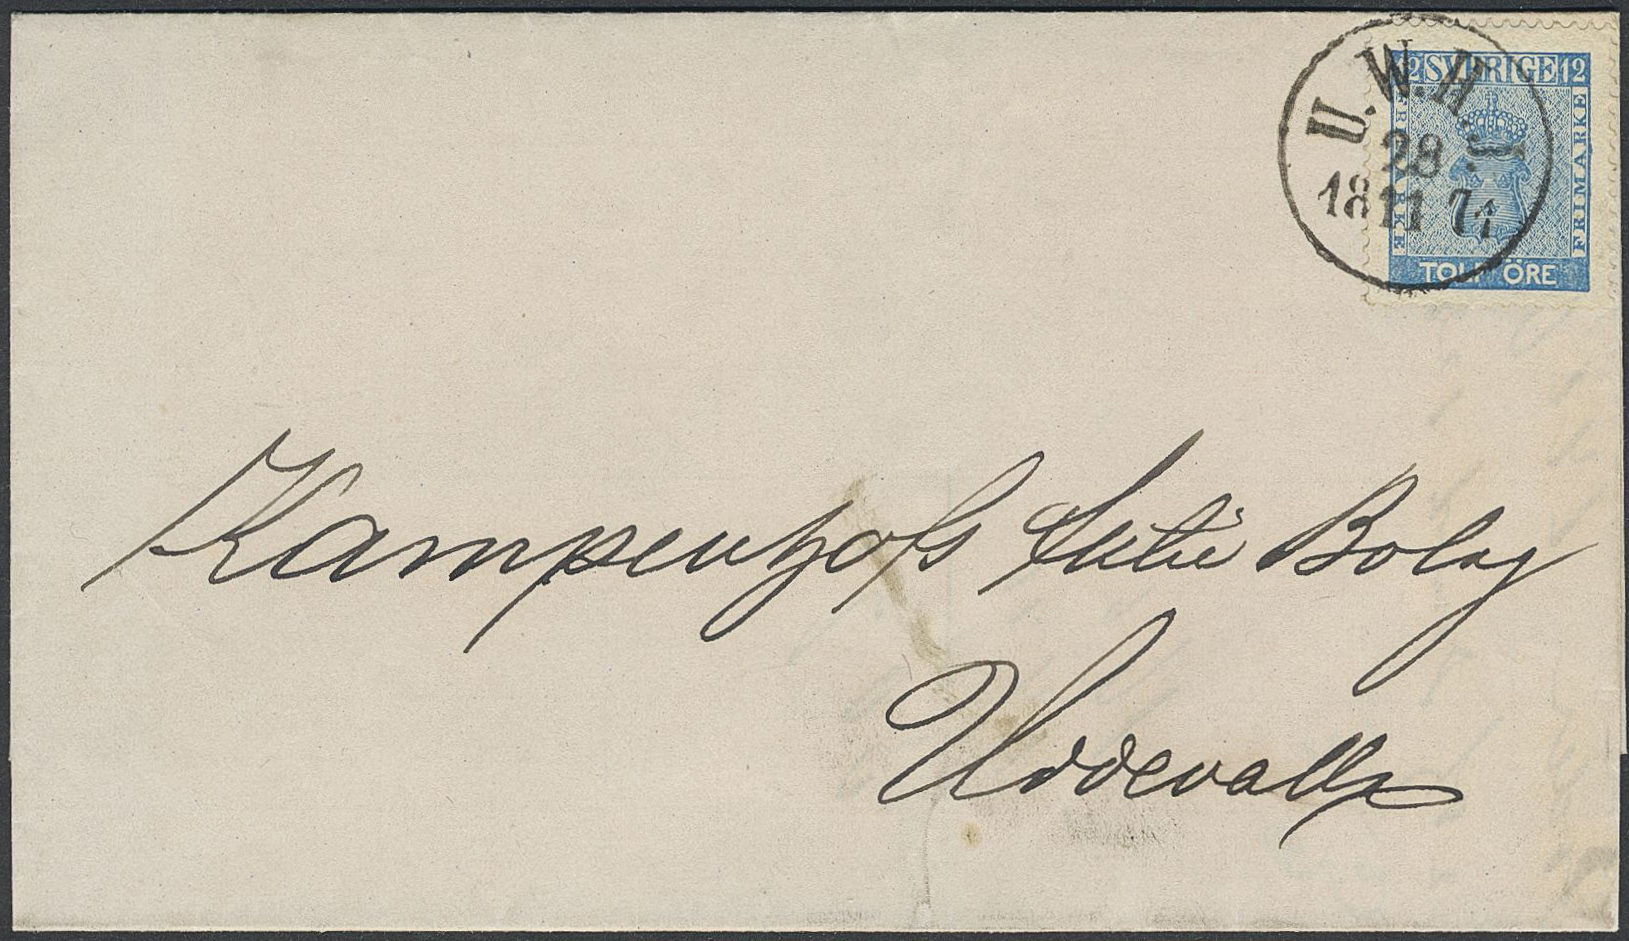 12 SVERIGE 12
FRIMÄRKE
FRIMÄRKE
TOLF ÖRE
U.W.H.J.
28
18 11 71
Kampenhofs Actie Bolag
Uddevalla